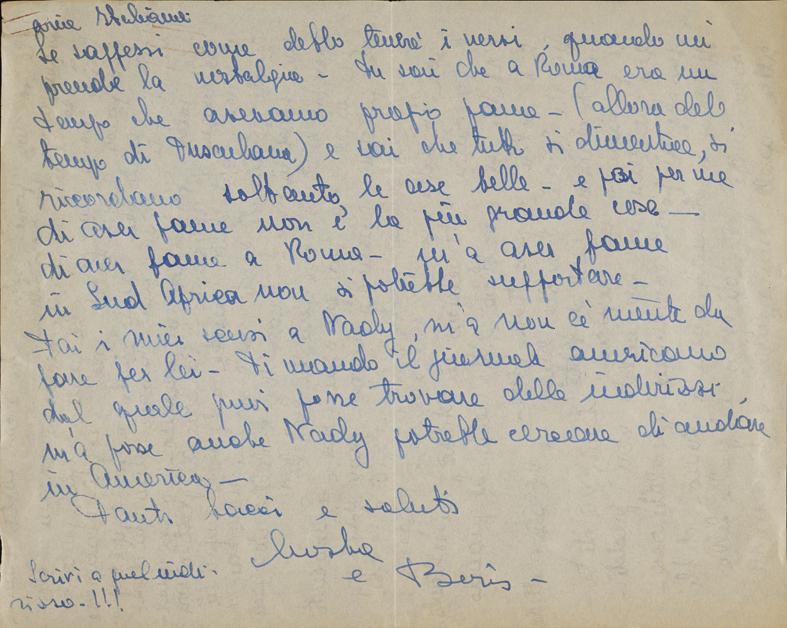 Se sapessi come debbo tenere i nervi, quando mi
prende la nostalgia - Tu sai che a Roma era un
tempo che avevamo propio fame - (allora del
tempo di Tuscubana) e sai che tutto si dimentica, si
riccordano soltanto le cose belle - e poi per me
di aver fame non è la più grande cosa -
di aver fame a Roma - m'a aver fame
in Sud Africa non si potrebbe supportare -
Fai i miei scusi a Nady, m'a non c'è niente da
fare per lei - Ti mando il giornale americano
dal quale puoi forse trovare delle indirissi
m'a forse anche Nady potrebbe cercare di andare
in America -
Tanti bacci e saluti
e Boris -
Scrivi a quel indi-
risso - !!!